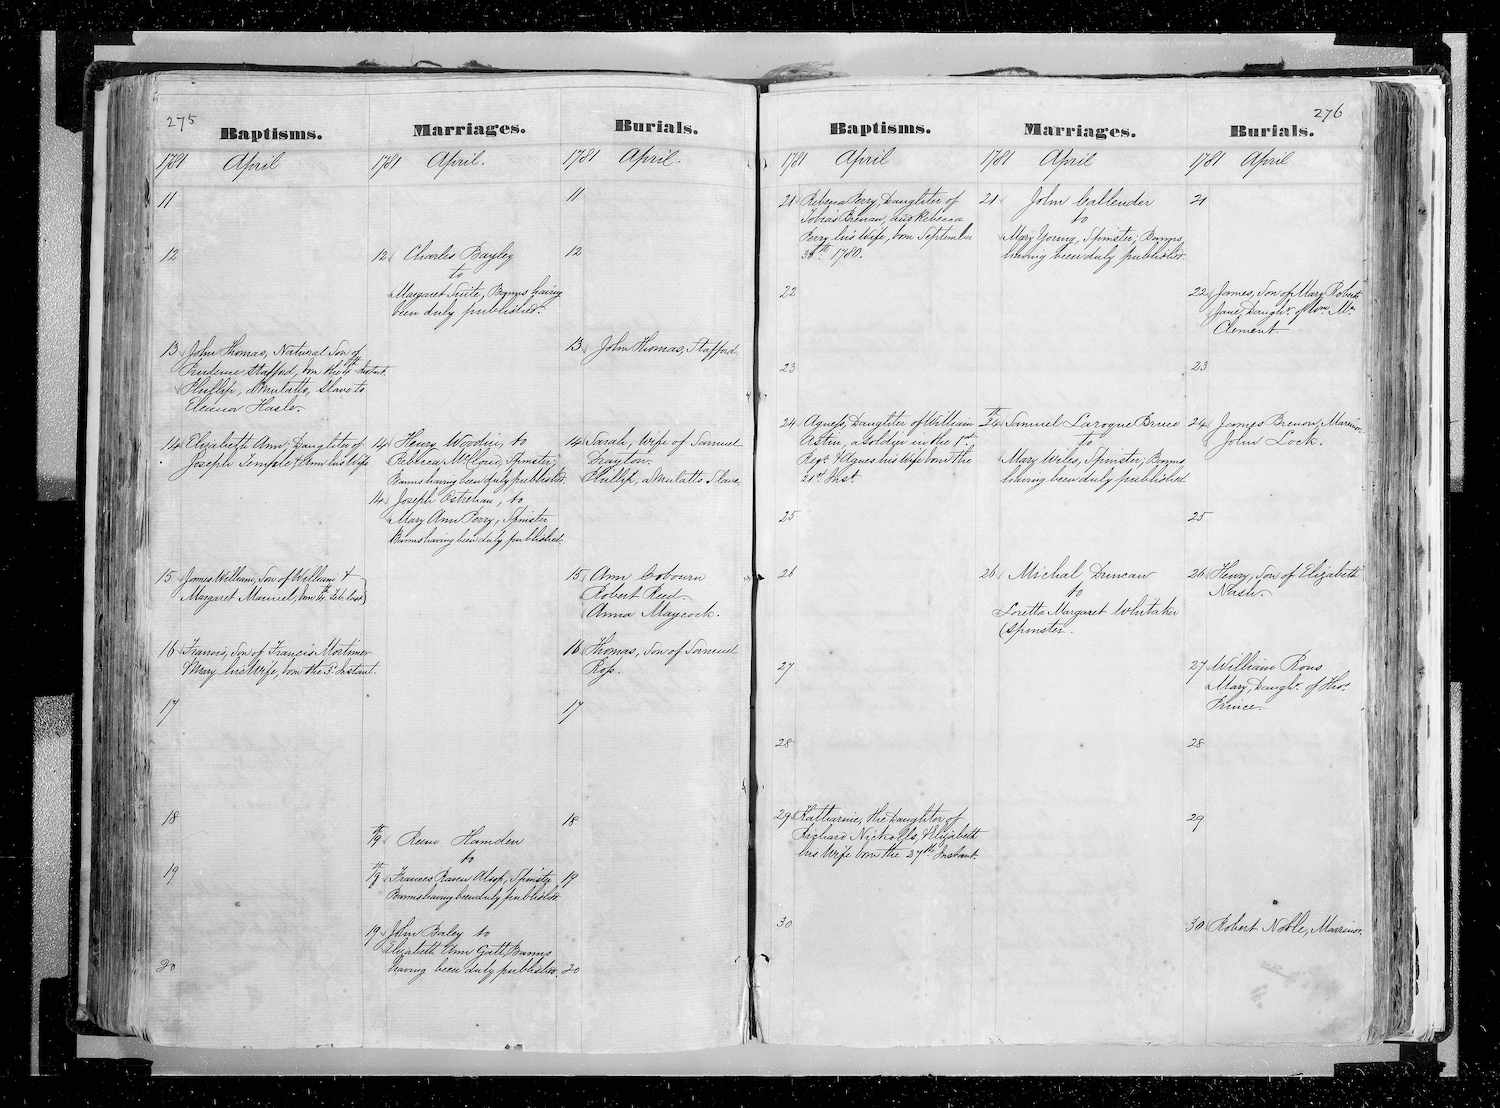 275
Baptisms.
1781 April
11
12
13 John Thomas, Natural Son of
Prudence Stafford, born the Instant.
Phillip, a Mulatto, Slave to
Eleanor Hasle.
14 Elizabeth Ann Daughter of
Joseph Temple & Ann his Wife
15 James William, Son of William &
Margaret born Feb. last
16 Francis, Son of Francis Mortimer
Mary his Wife, born the 3d Instant.
17
18
19
20
Marriages.
1781 April.
12 Charles Bayley
to
Margaret Tuite, Banns having
been duly published.
14 Henry Woodin, to
Rebecca Spinster;
Banns having been duly published.
14 Joseph Estrehan, to
Mary Ann Perry, Spinster
Banns having been duly published.
19 Hamden
to
19 Frances Raven Alsop, Spinster
Banns having been duly published
19 John Baley to
Elizabeth Ann Banns
having been duly published.
Burials.
1781 April.
11
12
13 John Thomas, Stafford,
14 Sarah, Wife of Samuel
Drayton.
Phillip, a Mulatto Slave,
15 Ann Cobourn
Robert Reed.
Anna Maycock.
16 Thomas, Son of Samuel
Ross.
17
18
19
20
276
Baptisms.
1781 April
21 Rebecca Perry, Daughter of
Tobias Brenan, and Rebecca
Perry his Wife, born September
1780.
22
23
24 Agness, Daughter of William
Astin, a Soldier in the 1st
Regt. & Agnes his Wife born the
21st Inst
25
26
27
28
29 Katharine, the Daughter of
Richard Nickolls, & Elizabeth
his Wife born the 27th Instant.
30
Marriages.
1781 April
21 John Callender
to
Mary Young, Spinster; Banns
having been duly published.
24 Samuel Laroque Bruce
to
Mary Wiles, Spinster; Banns
having been duly published
26 Michal Duncan
to
Loretta Margaret Whitaker
Spinster.
Burials.
1781 April
21
22 James, Son of Mary Roberts
Jane, Daughr. of Wm. Mc
Clement
23
24 James Brenon, Mariner,
John Lock.
25
26 Henry, Son of Elizabeth
Nash.
27 William Rous
Mary, Daughr. of Thos.
Prince.
28
29
30 Robert Noble, Marriner.